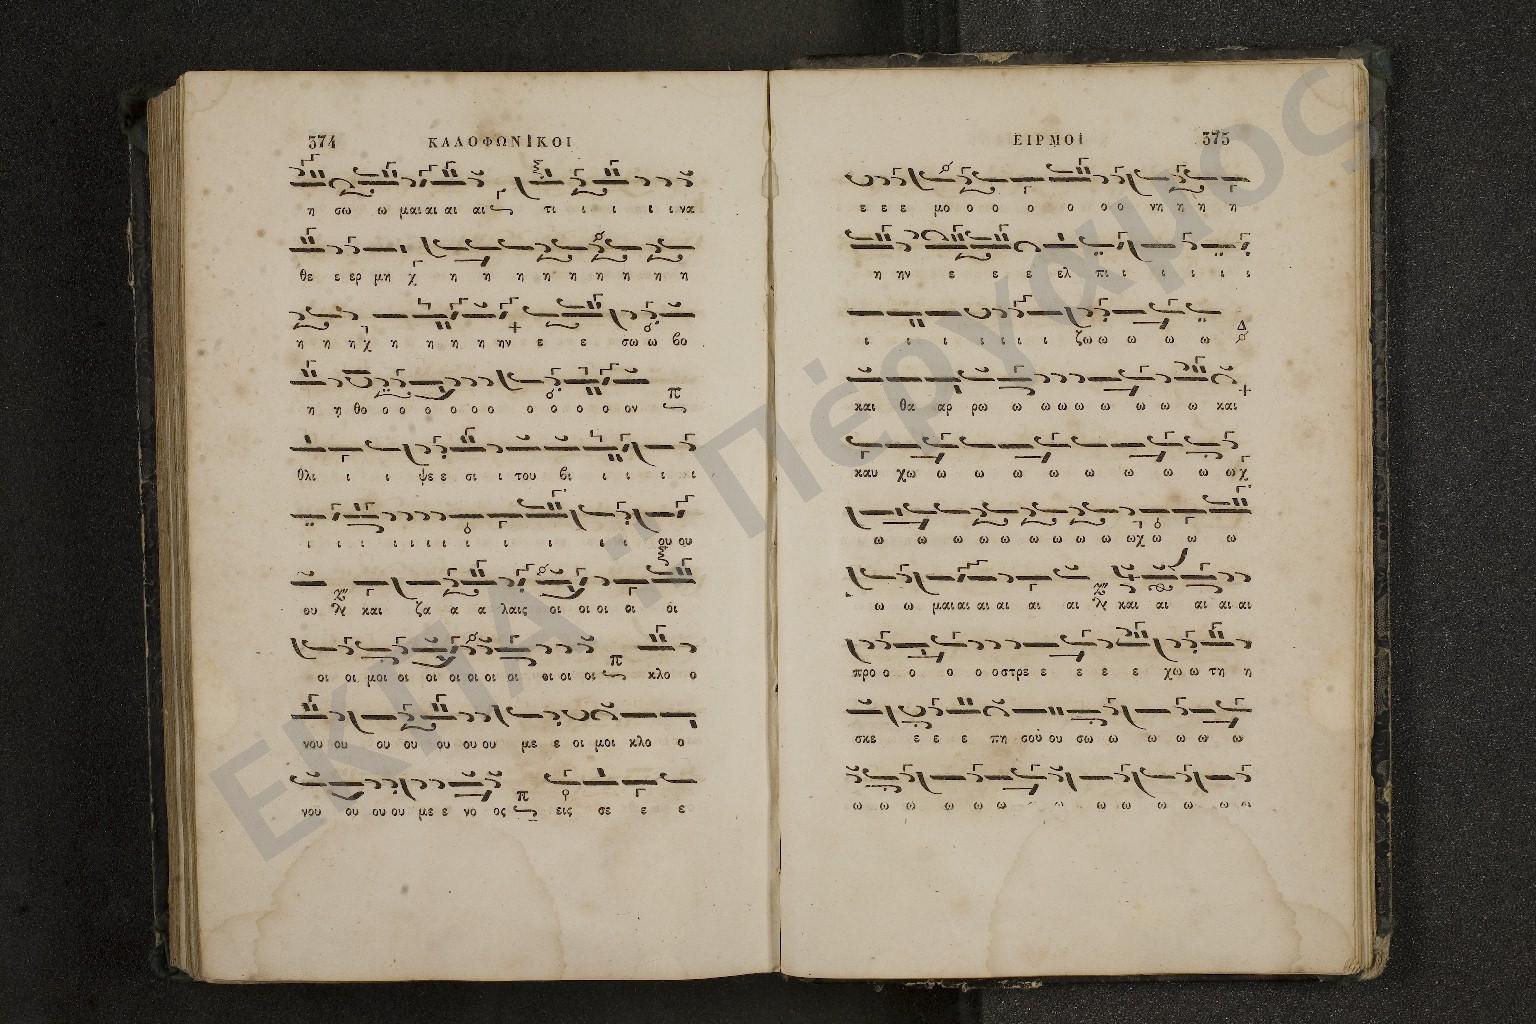 374 ΚΑΛΟΦΩΝΙΚΟΙ
η σω ω μαι αι αι αι τι ι ι ι ι να
θε ε ερ μη χ η η η η η η η η η
η η η χ η η η η ην ε ε σω ω βο
η η θο ο ο ο ο ο ο ο ο ο ο ο ον π
θλι ι ι ψε ε σι ι του βι ι ι ι ι
ι ι ι ι ι ι ι ι ι ι ι ου ου
ου και ζα α α λαις οι οι οι οι οι
οι οι μοι οι οι οι οι οι οι οι οι οι π κλο ο
νου ου ου ου ου ου ου με ε οι μοι κλο ο
νου ου ου ου με ε νο ος π εις σε ε ε
ΕΙΡΜΟΙ 375
ε ε ε μο ο ο ο ο ο ο νη η η η
η ην ε ε ε ελ πι ι ι ι ι ι
ι ι ι ι ι ι ι ζω ω ω ω ω Δ
και θα αρ ρω ω ω ω ω ω ω ω ω και
καυ χω ω ω ω ω ω ω ω ω ω χ
ω ω ω ω ω ω ω ω ω χ ω ω ω
ω ω μαι αι αι αι αι αι και αι αι αι αι
προ ο ο ο ο οστρε ε ε ε ε χω ω τη η
σκε ε ε ε πη σου ου σω ω ω ω ω ω
ω ω ω ω ω ω ω ω ω ω ω ω ω
ΕΚΠΑ : Πέργαμος